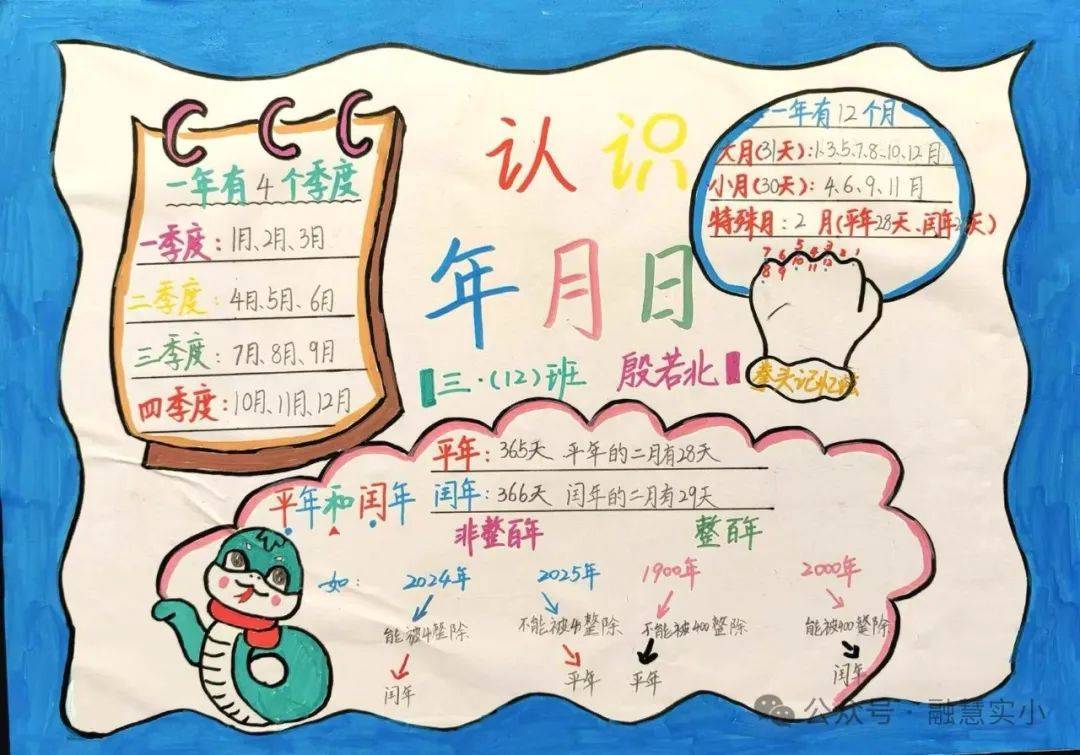 认识
年月日
三·(12)班 殷若北
一年有4个季度
一季度:1月、2月、3月
二季度:4月、5月、6月
三季度:7月、8月、9月
四季度:10月、11月、12月
一年有12个月
大月(31天):1、3、5、7、8、10、12月
小月(30天):4、6、9、11月
特殊月:2月(平年28天、闰年29天)
7 6 5 4 3 2 1
8 9 10 11 12
拳头记忆
平年和闰年
平年:365天 平年的二月有28天
闰年:366天 闰年的二月有29天
非整百年 整百年
如: 2024年 2025年 1900年 2000年
能被4整除 不能被4整除 不能被400整除 能被400整除
闰年 平年 平年 闰年
公众号·融慧实小